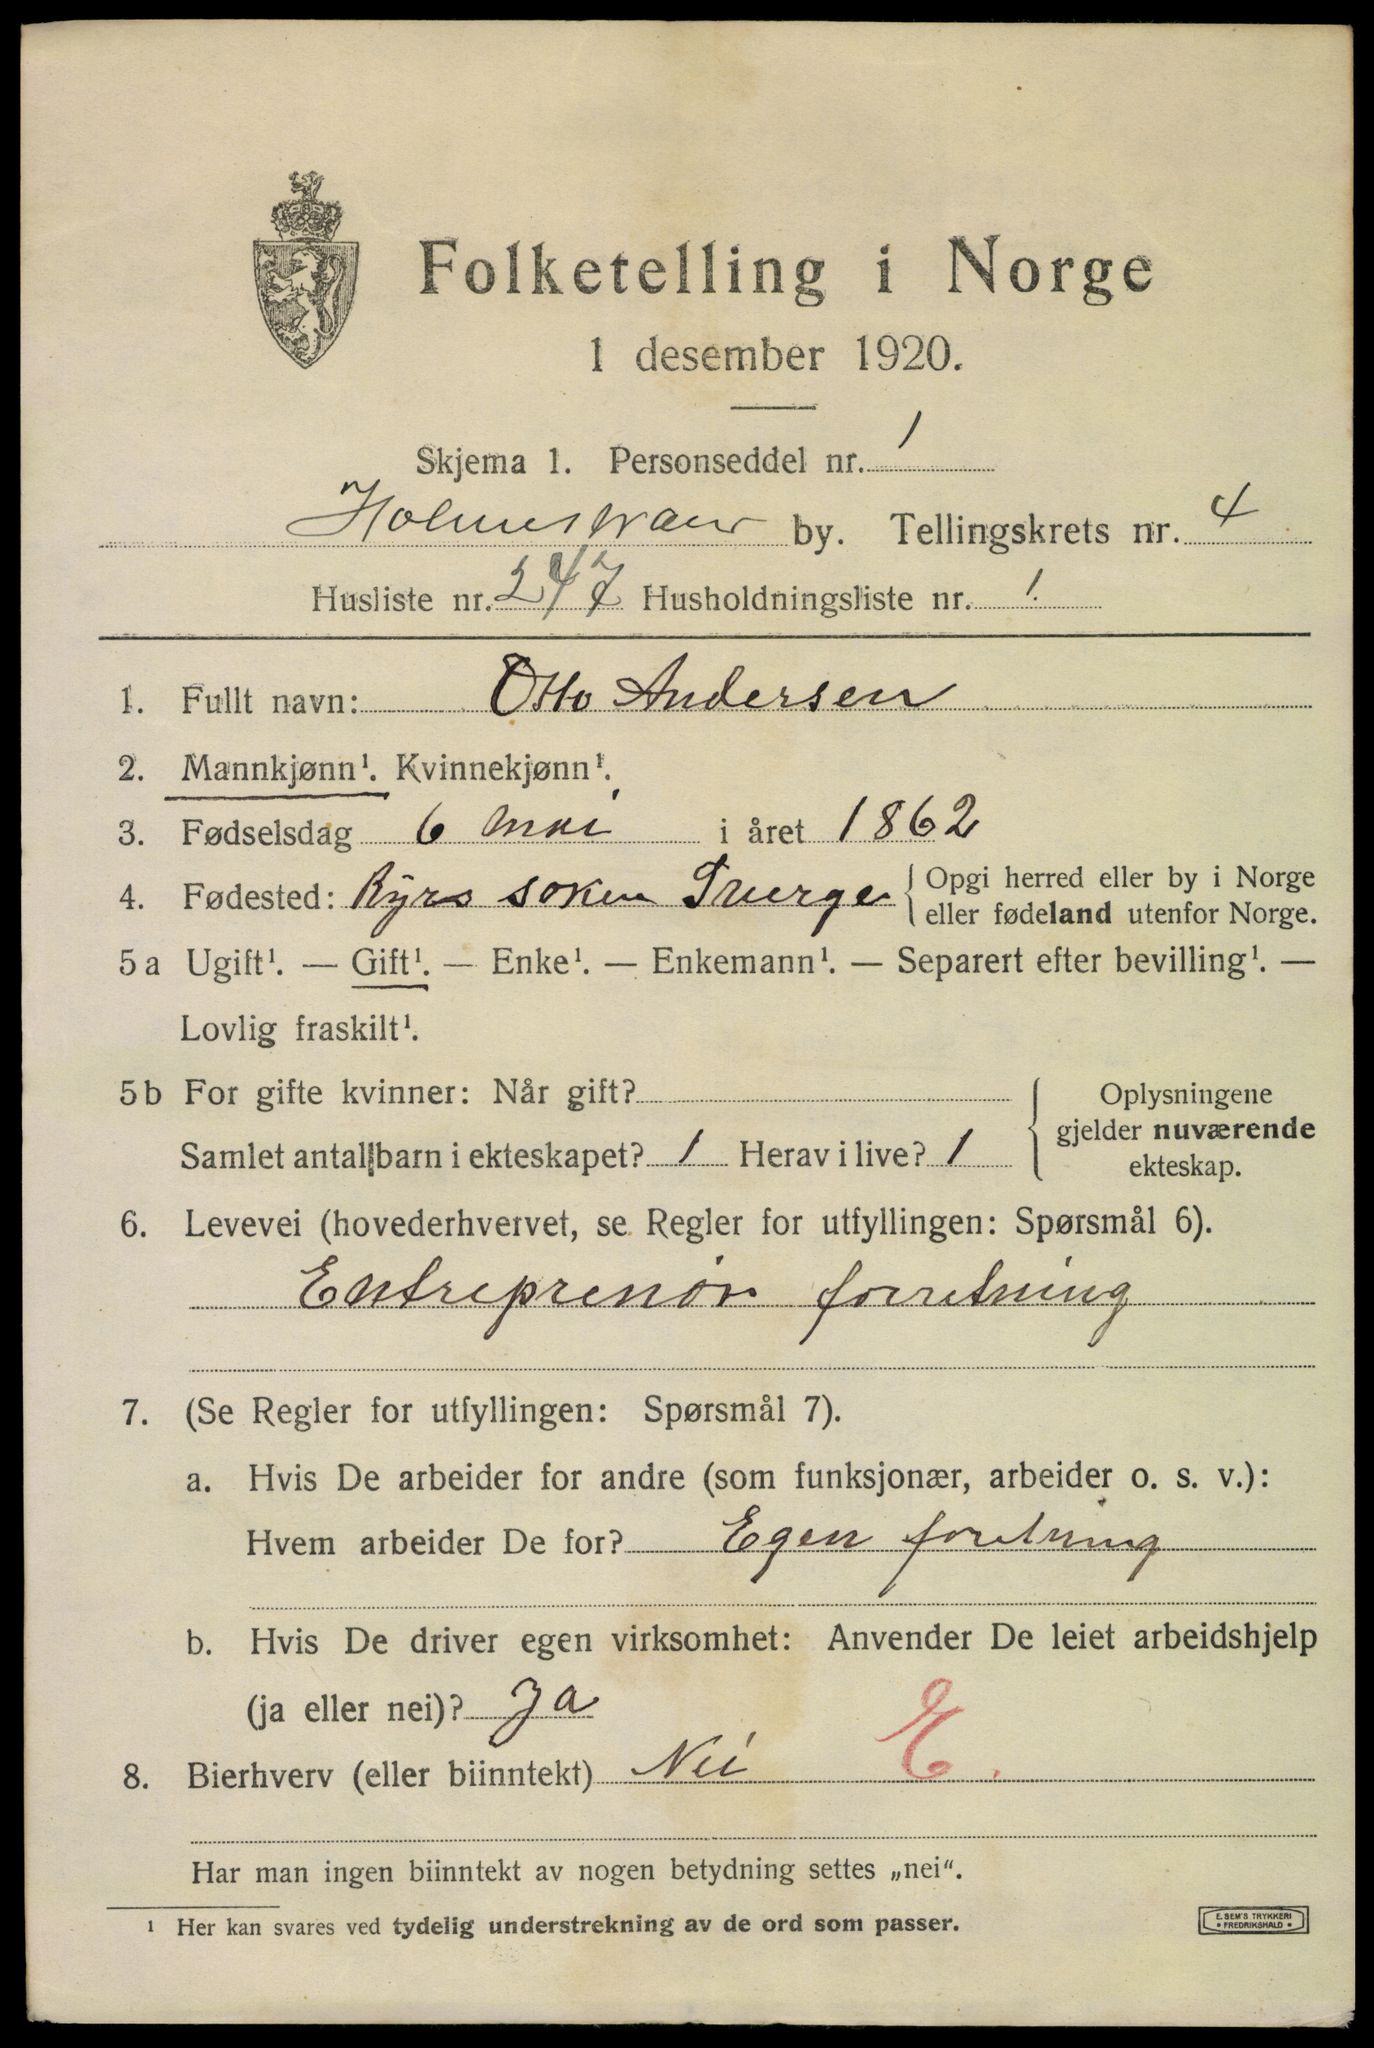 Folketelling i Norge
1 desember 1920.
Skjema 1. Personseddel nr. 1
Holmestrand by. Tellingskrets nr. 4
Husliste nr. 247 Husholdningsliste nr. 1.
1. Fullt navn: Otto Andersen
2. Mannkjønn¹. Kvinnekjønn¹.
3. Fødselsdag 6 mai i året 1862
4. Fødested: Ryrs soken Sverge { Opgi herred eller by i Norge
eller fødeland utenfor Norge.
5a Ugift¹. — Gift¹. — Enke¹. — Enkemann¹. — Separert efter bevilling¹. —
Lovlig fraskilt¹.
5b For gifte kvinner: Når gift?
Samlet antal barn i ekteskapet? 1 Herav i live? 1
{ Oplysningene
gjelder nuværende
ekteskap.
6. Levevei (hovederhvervet, se Regler for utfyllingen: Spørsmål 6).
Entreprenør forretning
7. (Se Regler for utfyllingen: Spørsmål 7).
a. Hvis De arbeider for andre (som funksjonær, arbeider o. s. v.):
Hvem arbeider De for? Egen foretning
b. Hvis De driver egen virksomhet: Anvender De leiet arbeidshjelp
(ja eller nei)? Ja E.
8. Bierhverv (eller biinntekt) Nei
Har man ingen biinntekt av nogen betydning settes „nei“.
¹ Her kan svares ved tydelig understrekning av de ord som passer.
E. SEM'S TRYKKERI
• FREDRIKSHALD •